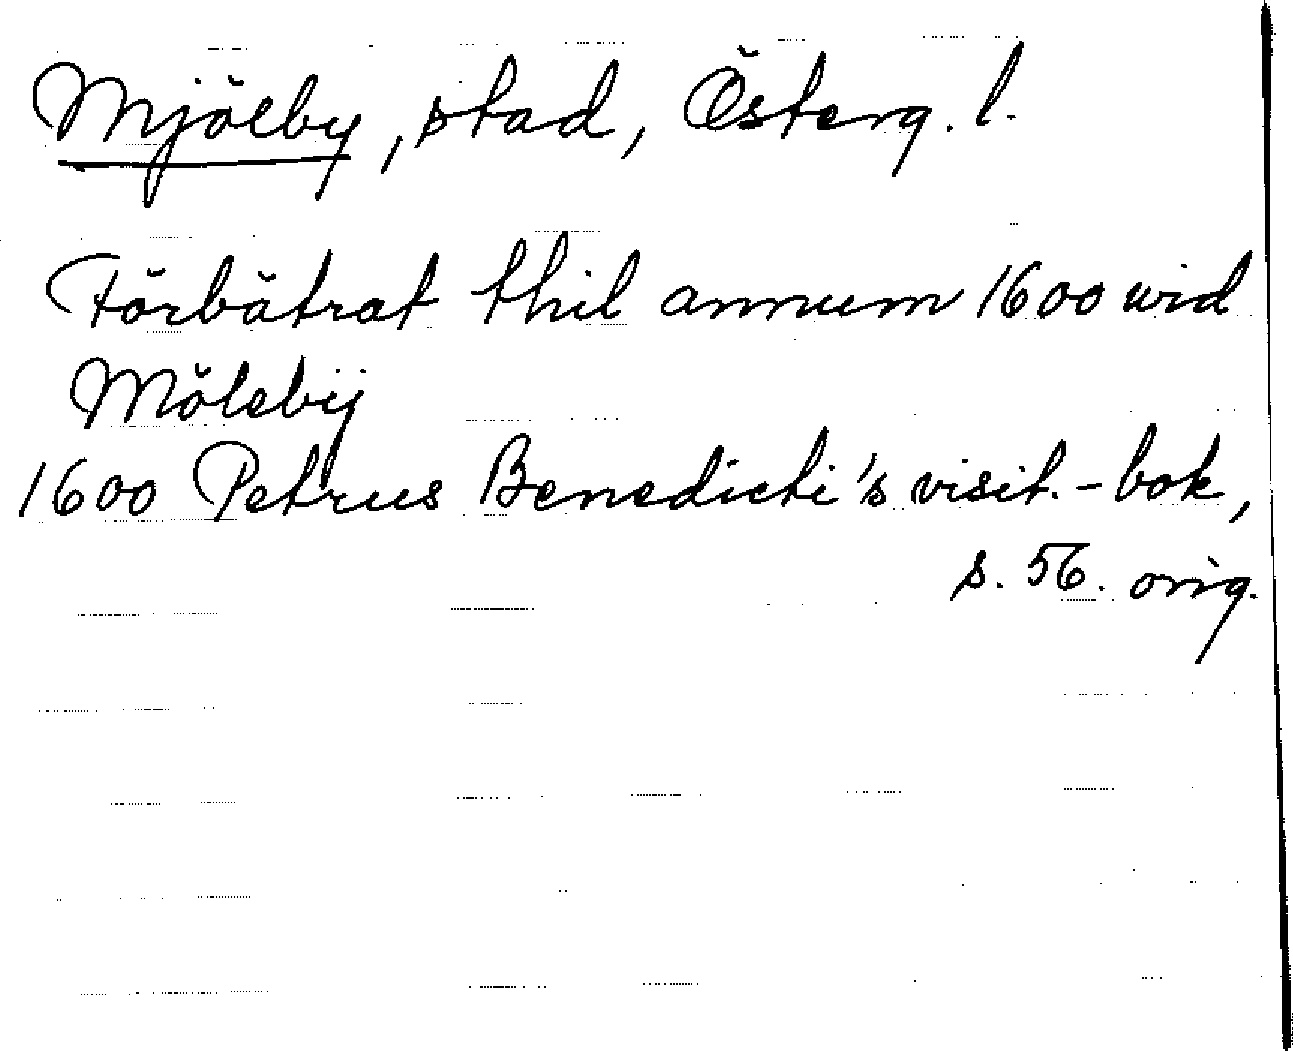 Mjölby, stad, Österg. l.
Förbätrat thil annum 1600 wid
Mölebÿ
1600 Petrus Benedicti's visit.-bok,
s. 56. orig.